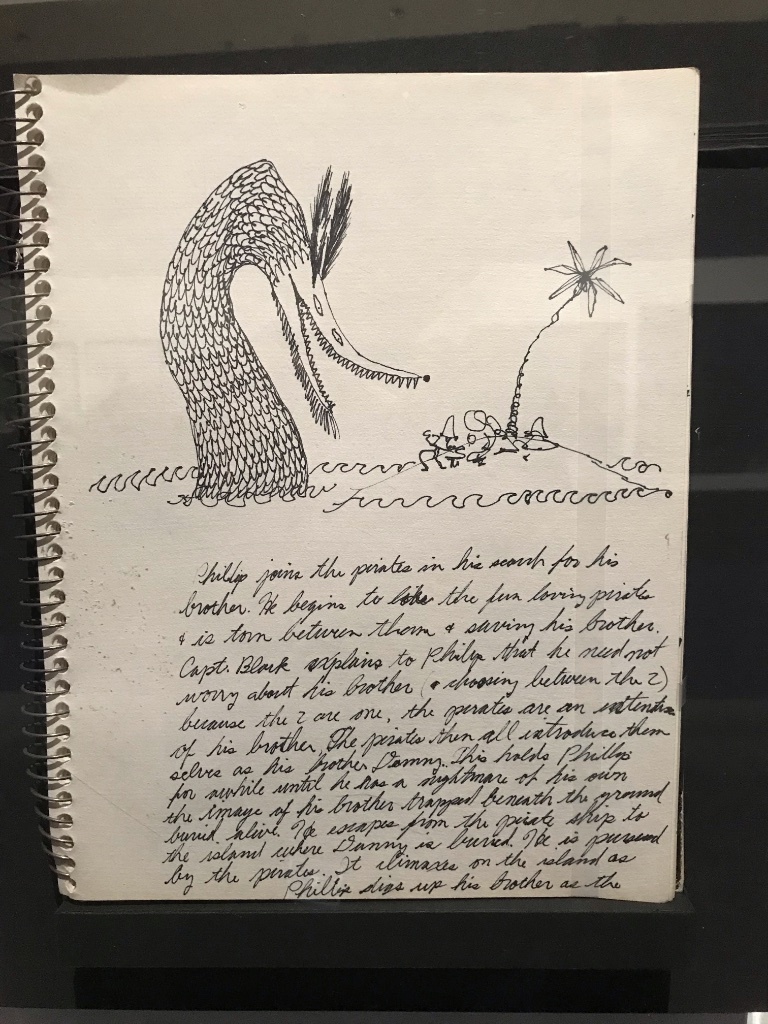 Phillip joins the pirates in his search for his
brother. He begins to like the fun loving pirates
& is torn between them & saving his brother.
Capt. Black explains to Philip that he need not
worry about his brother (& choosing between the 2)
because the 2 are one, the pirates are an
of his brother. The pirates then all introduce them
selves as his brother Danny. This holds Phillip
for awhile until he has a nightmare of his own
the image of his brother trapped beneath the ground
buried alive. He escapes from the pirate ship to
the island where Danny is buried. He is pursued
by the pirates. It climaxes on the island as
Phillip digs up his brother as the